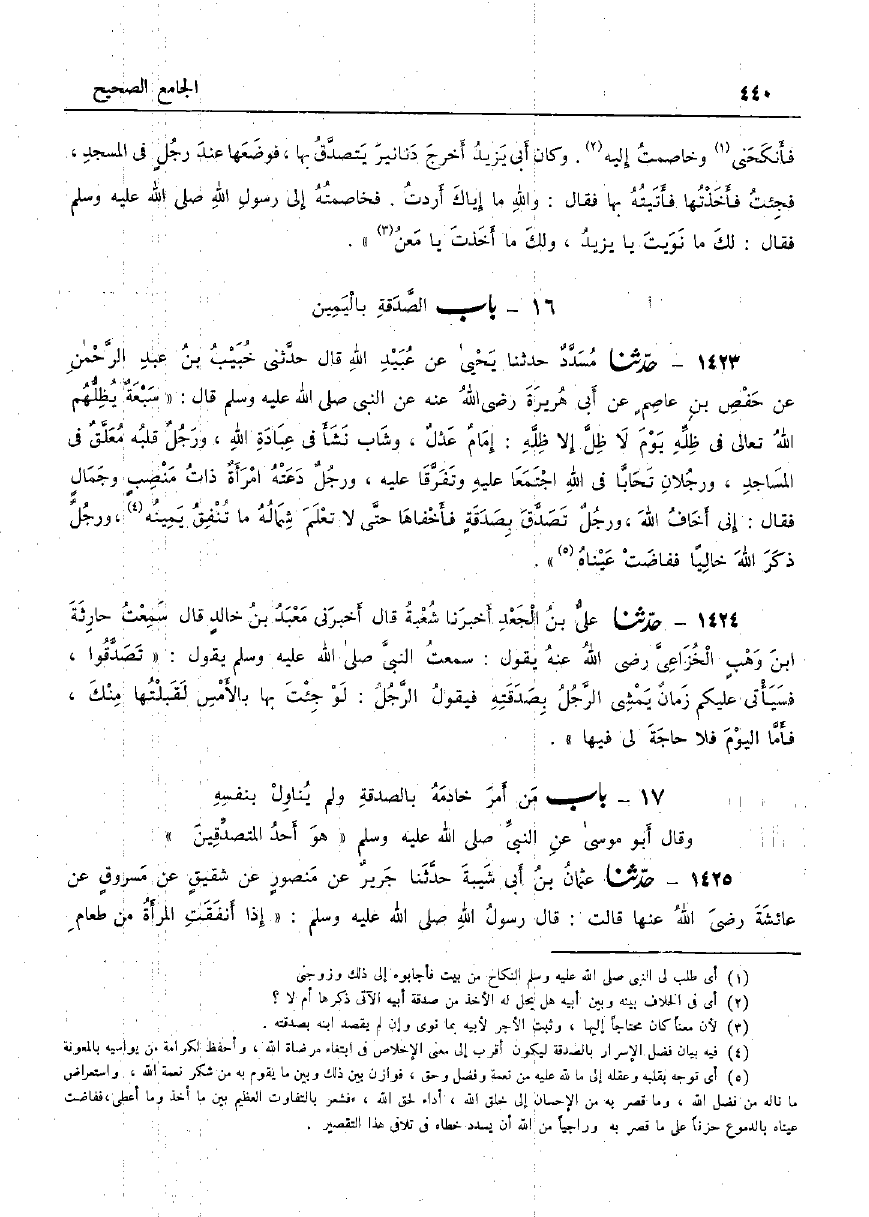 ٤٤٠ الجامع الصحيح
فأَنكَحَنى (١) وخاصمتُ إليه (٢) . وكان أَبى يَزيدُ أَخرجَ دَنانيرَ يَتصدَّقُ بها ، فوضَعَها عندَ رجُلٍ فى المسجدِ ،
فجئتُ فأَخَذْتُها فأَتَيتُهُ بها فقال : واللهِ ما إياكَ أَردتُ . فخاصمتُهُ إلى رسولِ اللهِ صلى الله عليه وسلم
فقال : لكَ ما نَوَيتَ يا يزيدُ ، ولكَ ما أَخَذتَ يا مَعنُ (٣) » .
١٦ – باب الصَّدَقةِ بالْيَمِين
١٤٢٣ – حدّثنا مُسَدَّدٌ حدثنا يَحْيىٰ عن عُبَيْدِ اللهِ قال حدَّثنى خُبَيْبُ بنُ عبدِ الرَّحْمٰنِ
عن حَفْصِ بنِ عاصِمٍ عن أَبى هُريرَةَ رضى اللهُ عنه عن النبى صلى الله عليه وسلم قال : « سَبْعَةٌ يُظِلُّهم
اللهُ تعالى فى ظِلِّهِ يَوْمَ لَا ظِلَّ إلا ظِلِّهِ : إمَامٌ عَدْلٌ ، وشَاب نَشَأَ فى عِبَادَةِ اللهِ ، ورَجُلٌ قلبُه مُعَلَّقٌ فى
المسَاجدِ ، ورجُلانِ تَحَابَّا فى اللهِ اجْتَمَعَا عليهِ وتَفَرَّقَا عليه ، ورجُلٌ دَعَتْهُ امْرَأَةٌ ذاتُ مَنْصِبٍ وجَمَالٍ
فقال : إنى أَخَافُ اللهَ ، ورجُلٌ تَصَدَّقَ بِصَدَقةٍ فأَخْفاهَا حتَّى لا تعْلَمَ شِمَالُهُ ما تُنْفِقُ يَمِينُه (٤) ، ورجُلٌ
ذكَرَ اللهَ خالِيًا ففاضَتْ عَيْناهُ (٥) » .
١٤٢٤ – حدّثنا علىُّ بنُ الْجَعْدِ أخبرَنا شُعْبةُ قال أخبرَنى مَعْبَدُ بنُ خالدٍ قال سَمِعْتُ حارثَةَ
ابنَ وَهْبٍ الْخُزَاعِىَّ رضى اللهُ عنهُ يقول : سمعتُ النبىَّ صلى الله عليه وسلم يقول : « تَصَدَّقُوا ،
فسَيَأْتى عليكم زَمانٌ يَمْشِى الرَّجُلُ بِصَدَقَتِهِ فيقولُ الرَّجُلُ : لَوْ جِئْتَ بها بالأَمْسِ لَقَبِلْتُها مِنْكَ ،
فأَمَّا اليوْمَ فلا حاجَةَ لى فيها » .
١٧ – باب مَن أَمرَ خادمَهُ بالصدقةِ ولم يُناوِلْ بنفسِهِ
وقال أَبو موسىٰ عنِ النبىِّ صلى الله عليه وسلم « هوَ أَحدُ المتصدِّقِينَ »
١٤٢٥ – حدّثنا عثمانُ بنُ أَبى شَيبةَ حدَّثَنا جَريرٌ عن مَنصورٍ عن شقيقٍ عن مَسروقٍ عن
عائشَةَ رضىَ اللهُ عنها قالت : قال رسولُ اللهِ صلى الله عليه وسلم : « إذا أَنفَقَتِ المرأَةُ من طعامِ
(١) أى طلب لى النبى صلى الله عليه وسلم النكاح من بيت فأجابوه إلى ذلك وزوجنى
(٢) أى فى الخلاف بينه وبين أبيه هل يحل له الأخذ من صدقة أبيه الآتى ذكرها أم لا ؟
(٣) لأن معناً كان محتاجاً إليها ، وثبت الأجر لأبيه بما نوى وإن لم يقصد ابنه بصدقته .
(٤) فيه بيان فضل الإسرار بالصدقة ليكون أقرب إلى معنى الإخلاص فى ابتغاء مرضاة الله ، وأحفظ لكرامة من يواسيه بالمعونة
(٥) أى توجه بقلبه وعقله إلى ما لله عليه من نعمة وفضل وحق ، فوازن بين ذلك وبين ما يقوم به من شكر نعمة الله ، واستعراض
ما ناله من فضل الله ، وما قصر به من الإحسان إلى خلق الله ، أداء لحق الله ، فشعر بالتفاوت العظيم بين ما أخذ وما أعطى ، ففاضت
عيناه بالدموع حزناً على ما قصر به وراجياً من الله أن يسدد خطاه فى تلافى هذا التقصير .